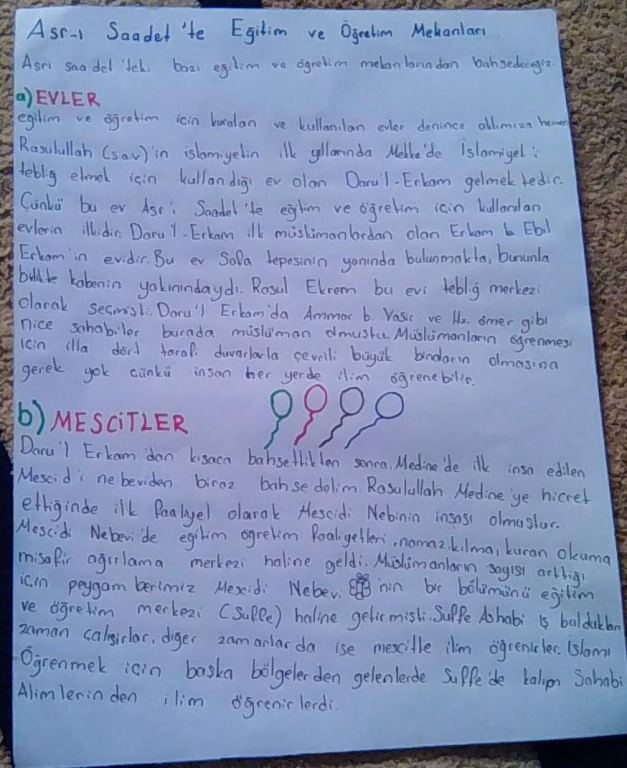 Asr-ı Saadet'te Eğitim ve Öğretim Mekanları
Asrı saadet'teki bazı eğitim ve öğretim mekanlarından bahsedeceğiz.
a) EVLER
eğitim ve öğretim için kurulan ve kullanılan evler denince aklımıza hemen
Rasulullah (sav)'in islamiyetin ilk yıllarında Mekke'de İslamiyet'i
tebliğ etmek için kullandığı ev olan Daru'l-Erkam gelmektedir.
Çünkü bu ev Asr'ı Saadet'te eğitim ve öğretim için kullanılan
evlerin ilkidir. Daru'l-Erkam ilk müslümanlardan olan Erkam b. Ebil
Erkam'ın evidir. Bu ev Safa tepesinin yanında bulunmakta, bununla
birlikte kabenin yakınındaydı. Rasul Ekrem bu evi tebliğ merkezi
olarak seçmişti. Daru'l Erkam'da Ammar b. Yasir ve Hz. ömer gibi
nice sahabiler burada müslüman olmuştu. Müslümanların öğrenmesi
için illa dört tarafı duvarlarla çevrili büyük binaların olmasına
gerek yok çünkü insan her yerde ilim öğrenebilir.
b) MESCİTLER
Daru'l Erkam'dan kısaca bahsettikten sonra, Medine'de ilk inşa edilen
Mescid'i nebeviden biraz bahsedelim. Rasulullah Medine'ye hicret
ettiğinde ilk faaliyet olarak Mescidi Nebinin inşası olmuştur.
Mescidi Nebevi'de eğitim öğretim faaliyetleri, namaz kılma, kuran okuma
misafir ağırlama merkezi haline geldi. Müslümanların sayısı arttığı
için peygamberimiz Mescidi Nebevi 'nin bir bölümünü eğitim
ve öğretim merkezi (Suffe) haline getirmişti. Suffe Ashabi iş buldukları
zaman çalışırlar, diğer zamanlarda ise mescitte ilim öğrenirler. İslamı
Öğrenmek için başka bölgelerden gelenlerde Suffe'de kalıp Sahabi
Alimlerinden ilim öğrenirlerdi.